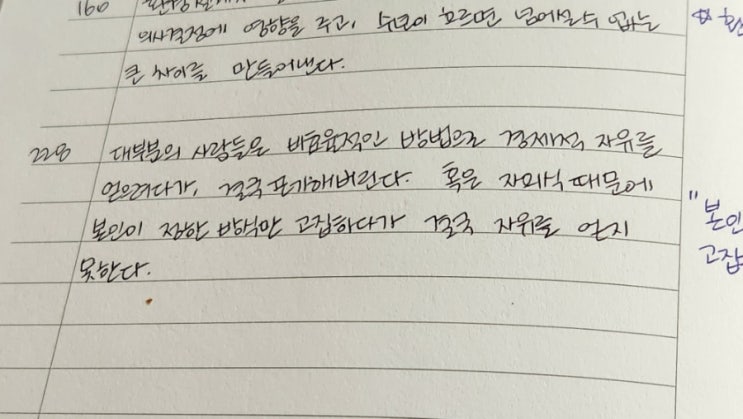 160
의사결정에 영향을 주고, 수년이 흐르면 넘어설 수 없는
큰 차이를 만들어낸다.
228 대부분의 사람들은 비효율적인 방법으로 경제적 자유를
얻으려다가, 결국 포기해버린다. 혹은 자의식 때문에
본인이 정한 방식만 고집하다가 결국 자유를 얻지
못한다.
"본인
고집